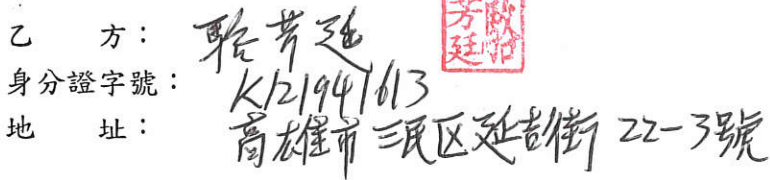 芳廷
乙方：芳廷
身分證字號：K121941613
地址：高雄市三民区延吉街 22-3號